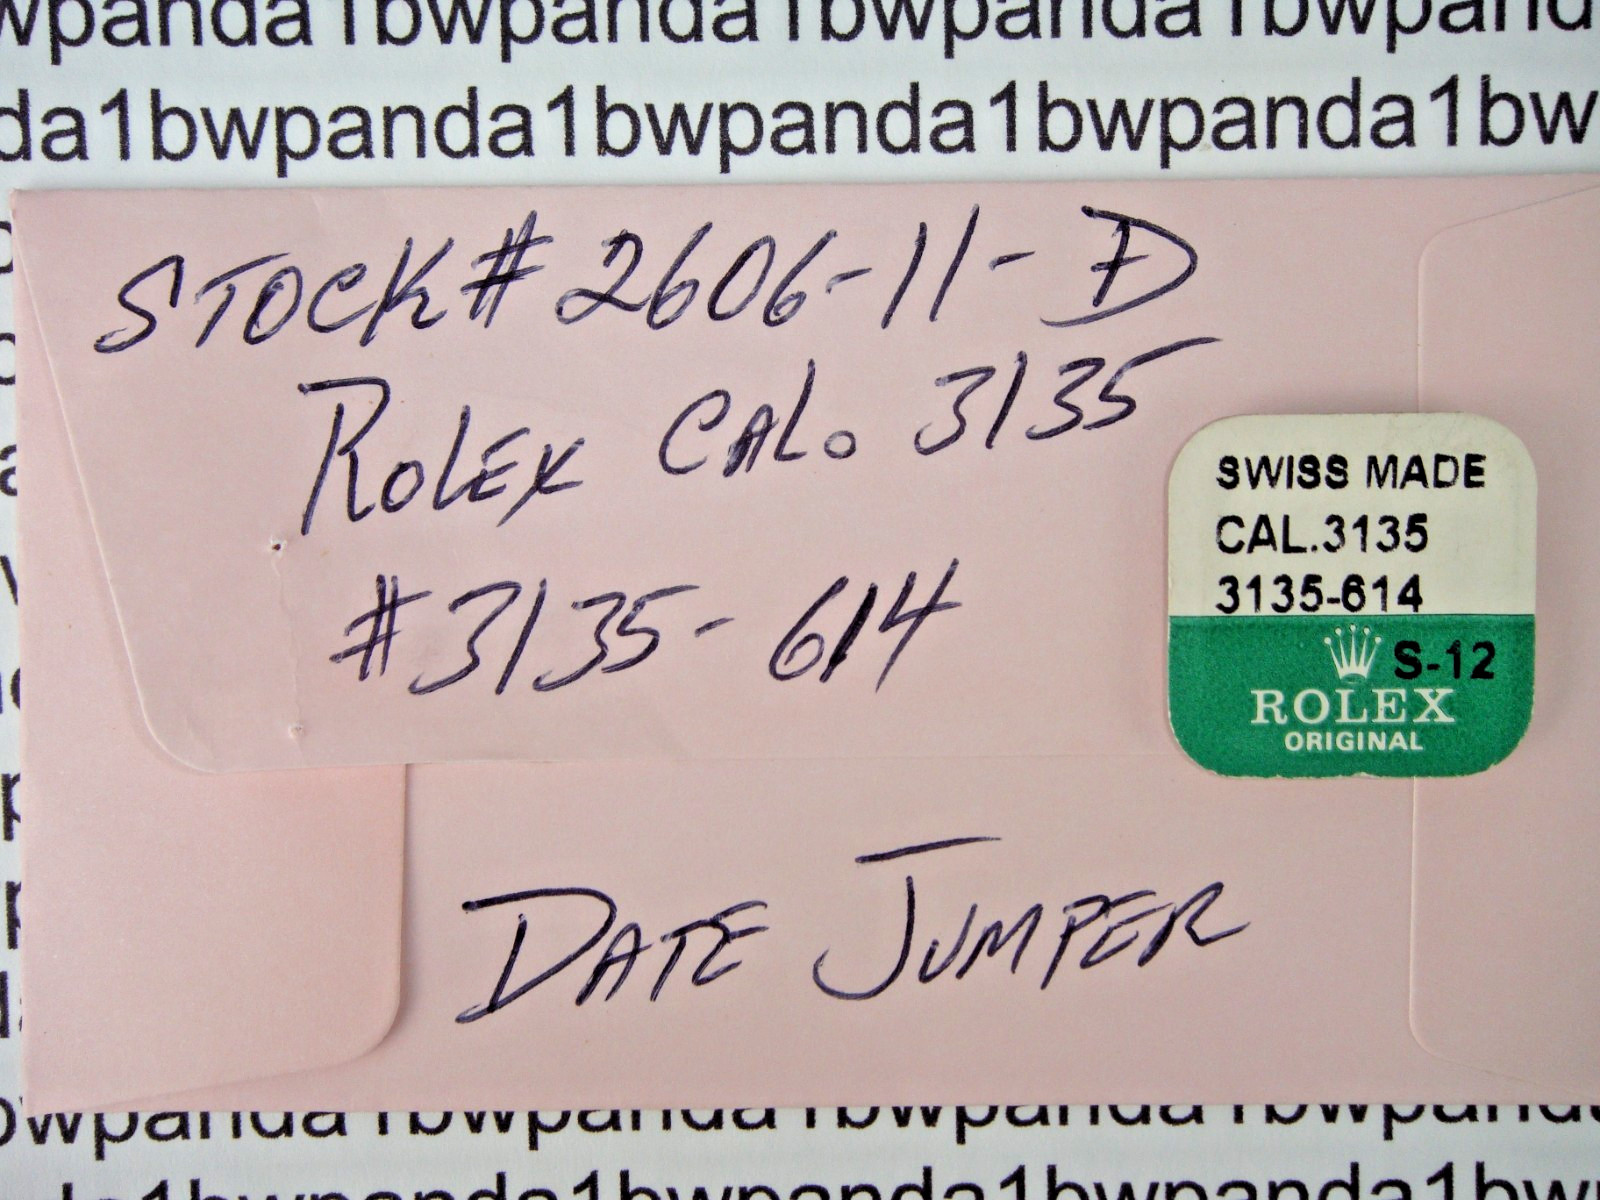 wpanda1bwpanda1bwpanda1bwpand
da1bwpanda1bwpanda1bwpanda1bw
STOCK # 2606-11-D
ROLEX CAL. 3135
#3135-614
SWISS MADE
CAL.3135
3135-614
S-12
ROLEX
ORIGINAL
DATE JUMPER
bwpanda1bwpanda1bwpanda1bwpanda
da1bwpanda1bwpanda1bwpanda1bw